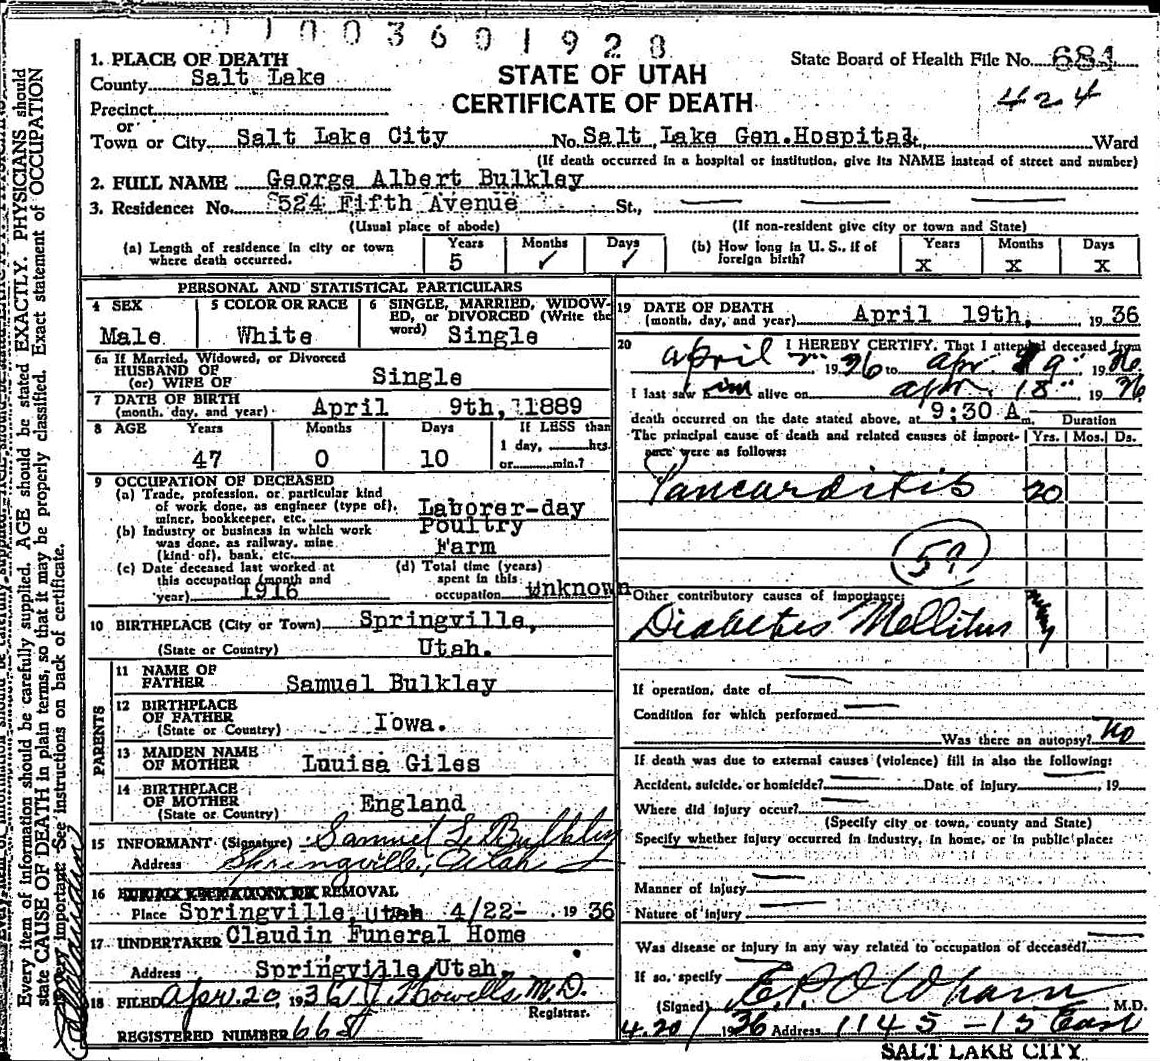 01003601928
1. PLACE OF DEATH
County Salt Lake
Precinct
or
Town or City Salt Lake City No. Salt Lake Gen. Hospital St., Ward
STATE OF UTAH
CERTIFICATE OF DEATH
State Board of Health File No. 681
424
(If death occurred in a hospital or institution, give its NAME instead of street and number)
2. FULL NAME George Albert Bulkley
3. Residence: No. 524 Fifth Avenue St.,
(Usual place of abode) (If non-resident give city or town and State)
(a) Length of residence in city or town where death occurred. Years 5 Months ✓ Days ✓
(b) How long in U. S., if of foreign birth? Years x Months x Days x
PERSONAL AND STATISTICAL PARTICULARS
4 SEX Male
5 COLOR OR RACE White
6 SINGLE, MARRIED, WIDOWED, or DIVORCED (Write the word) Single
6a If Married, Widowed, or Divorced
HUSBAND OF
(or) WIFE OF Single
7 DATE OF BIRTH
(month, day, and year) April 9th, 1889
8 AGE Years 47 Months 0 Days 10 If LESS than 1 day, hrs. or min.?
9 OCCUPATION OF DECEASED
(a) Trade, profession, or particular kind of work done, as engineer (type of), miner, bookkeeper, etc. Laborer-day
(b) Industry or business in which work was done, as railway, mine (kind of), bank, etc. Poultry Farm
(c) Date deceased last worked at this occupation (month and year) 1916
(d) Total time (years) spent in this occupation Unknown
10 BIRTHPLACE (City or Town) Springville,
(State or Country) Utah.
PARENTS
11 NAME OF FATHER Samuel Bulkley
12 BIRTHPLACE OF FATHER (State or Country) Iowa.
13 MAIDEN NAME OF MOTHER Luuisa Giles
14 BIRTHPLACE OF MOTHER (State or Country) England
15 INFORMANT (Signature) Samuel L. Bulkley
Address Springville, Utah
16 REMOVAL
Place Springville, Utah 4/22- 1936
17 UNDERTAKER Claudin Funeral Home
Address Springville Utah.
18 FILED Apr. 20, 1936 Howells M.D.
Registrar.
REGISTERED NUMBER 668
19 DATE OF DEATH
(month, day, and year) April 19th, 1936
20 I HEREBY CERTIFY, That I attended deceased from
April 1936 to Apr. 19 1936
I last saw him alive on Apr. 18 1936
death occurred on the date stated above, at 9:30 A m.
Duration
The principal cause of death and related causes of importance were as follows: Yrs. Mos. Ds.
Pancarditis 20
59
Other contributory causes of importance:
Diabetes Mellitus
If operation, date of
Condition for which performed
Was there an autopsy? No
If death was due to external causes (violence) fill in also the following:
Accident, suicide, or homicide? Date of injury 19
Where did injury occur?
(Specify city or town, county and State)
Specify whether injury occurred in industry, in home, or in public place:
Manner of injury
Nature of injury
Was disease or injury in any way related to occupation of deceased?
If so, specify
(Signed) M.D.
4-20 1936 Address 1145 - 15 East
SALT LAKE CITY
Every item of information should be carefully supplied. AGE should be stated EXACTLY. PHYSICIANS should
state CAUSE OF DEATH in plain terms, so that it may be properly classified. Exact statement of OCCUPATION
very important. See instructions on back of certificate.